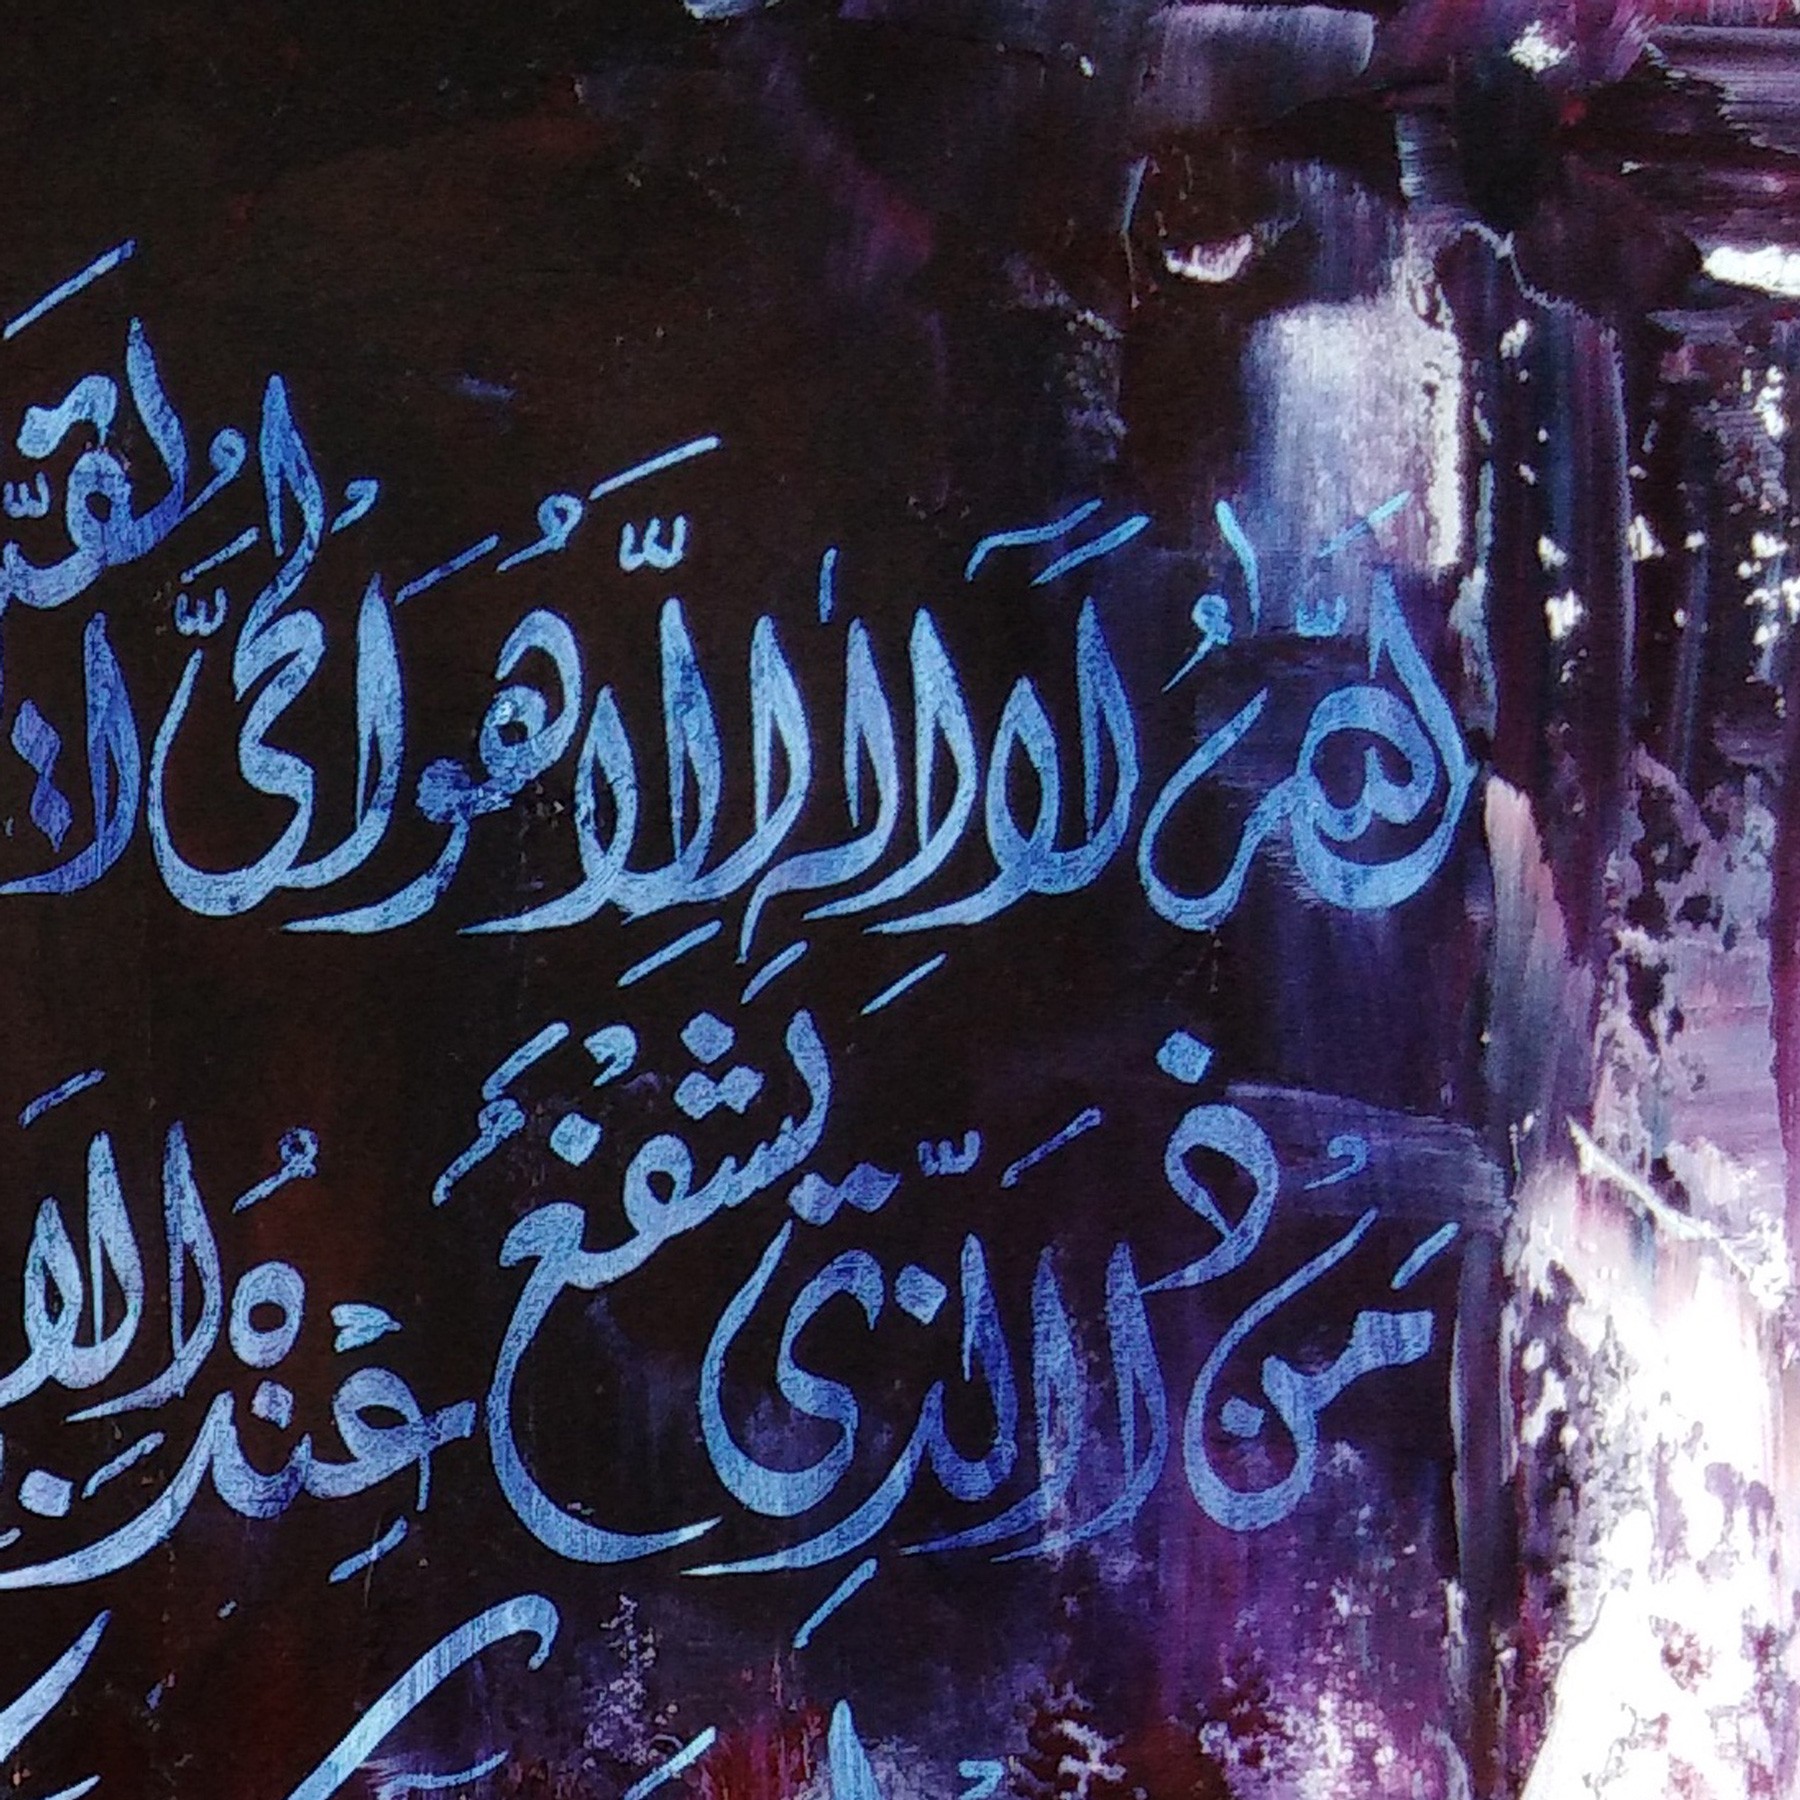 اَللّٰهُ لَآ اِلٰهَ اِلَّا هُوَ اَلْحَيُّ الْقَيُّ
مَنْ ذَا الَّذِيْ يَشْفَعُ عِنْدَهُ اِلَّا